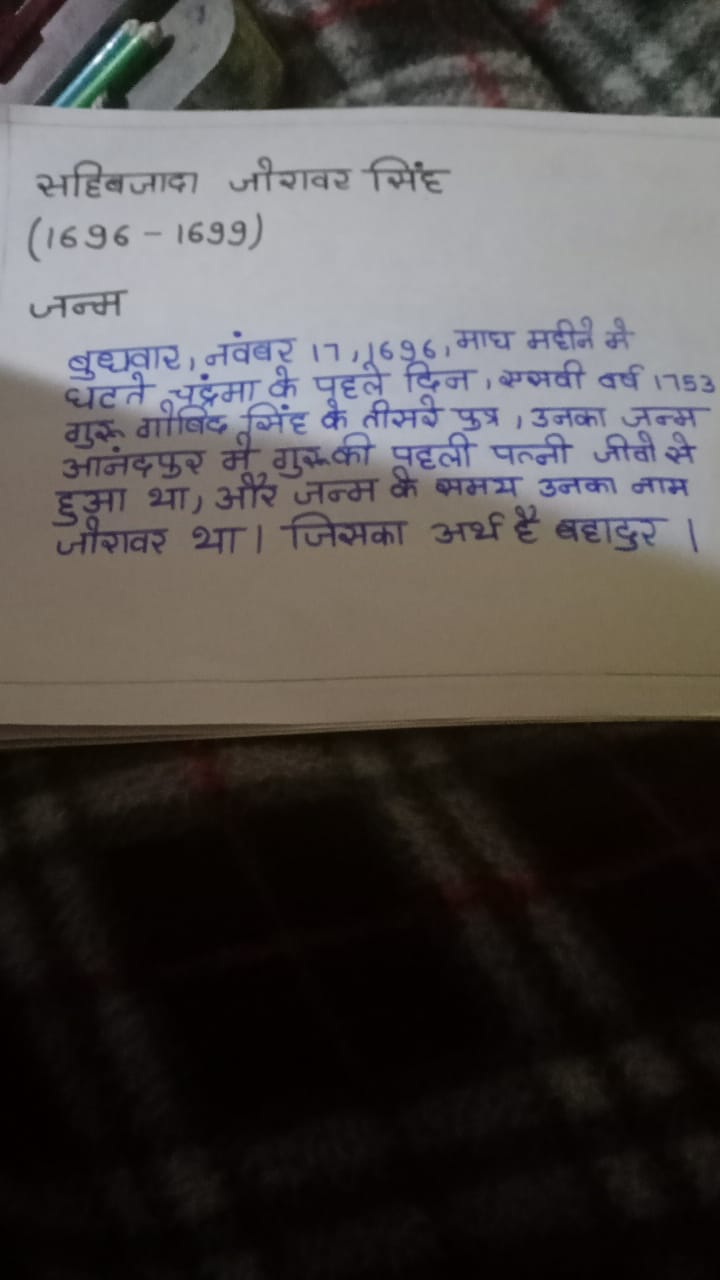 सहिबजादा जोरावर सिंह
(1696 - 1699)
जन्म
बुधवार, नवंबर 17, 1696, माघ महीने मे
घटते चंद्रमा के पहले दिन, एसवी वर्ष 1753
गुरू गोबिंद सिंह के तीसरे पुत्र, उनका जन्म
आनंदपुर में गुरू की पहली पत्नी जीतो से
हुआ था, और जन्म के समय उनका नाम
जोरावर था। जिसका अर्थ है बहादुर।